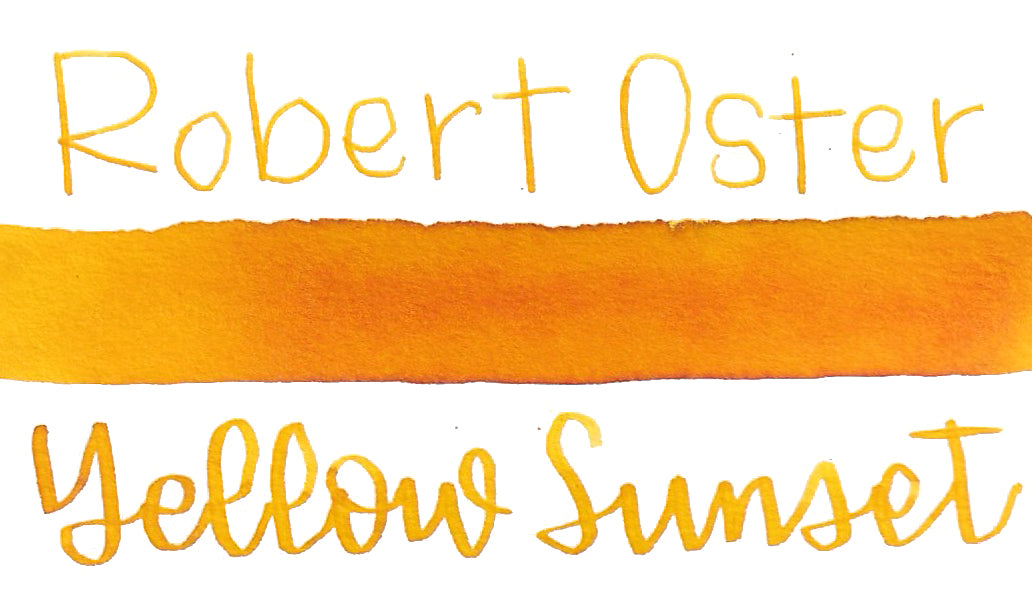 Robert Oster
Yellow Sunset